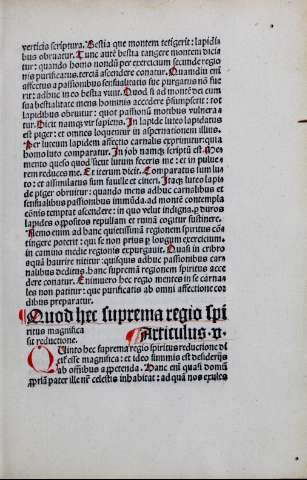 verticis scriptura. Bestia que montem tetigerit: lapidi
bus obruatur. Tunc autē bestia tangere montem dicit
tur: quando homo nondū per exercitium secunde regio
nis purificatus terciā ascendere conatur. Quamdiu eni
affectus a passionibus sensualitatis sue purgatus nō fue
rit: adhuc in eo bestia viuit. Quod si ad montē dei cum
sua bestialitate mens hominis accedere p̄sumpserit: tot
lapidibus obruitur: quot passionū motibus vulnera
tur. Dicit namqꝫ vir sapiens. In lapide luteo lapidatus
est piger: et omnes loquentur in aspernationem illius.
Per luteum lapidem affectio carnalis exprimitur: quia
homo luto comparatur. In iob namqꝫ scriptū est. Me
mento queso quod sicut lutum feceris me: et in pulue
rem reduces me. Et iterum dicit. Comparatus sum lu
to: et assimilatus sum fauille et cineri. Itaqꝫ luteo lapi
de piger obruitur: quando mens adhuc carnalibus et
sensualibus passionibus immūda: ad montē contempla
cōnis temptat ascendere: in quo velut indigna: ꝑ duros
lapides oppositos repulsam et ruinā cogitur sustinere.
Nemo enim ad hanc quietissimā regionem spiritus cō
tingere poterit: qui se non prius ꝑ longum exercitium
in camino medie regionis expurgauit. Quasi in cribro
aquā haurire nititur: quisquis adhuc passionibus car
nalibus deditus: hanc supremā regionem spiritus acce
dere conatur. Enimuero hec regio mentes in se carna
les non patitur: que purificatis ab omni affectione cor
dibus preparatur.
Quod hec suprema regio spi
ritus magnifica
sit reductione. Articulus .v.
Quinto hec suprema regio spiritus reductione dī
eſt esse magnifica: et ideo summis est desiderijs
ab om̄ibus appetenda. Hanc eni quasi domū
ꝓpriā pater ille nr̄ celestis inhabitat: ad quā nos exules